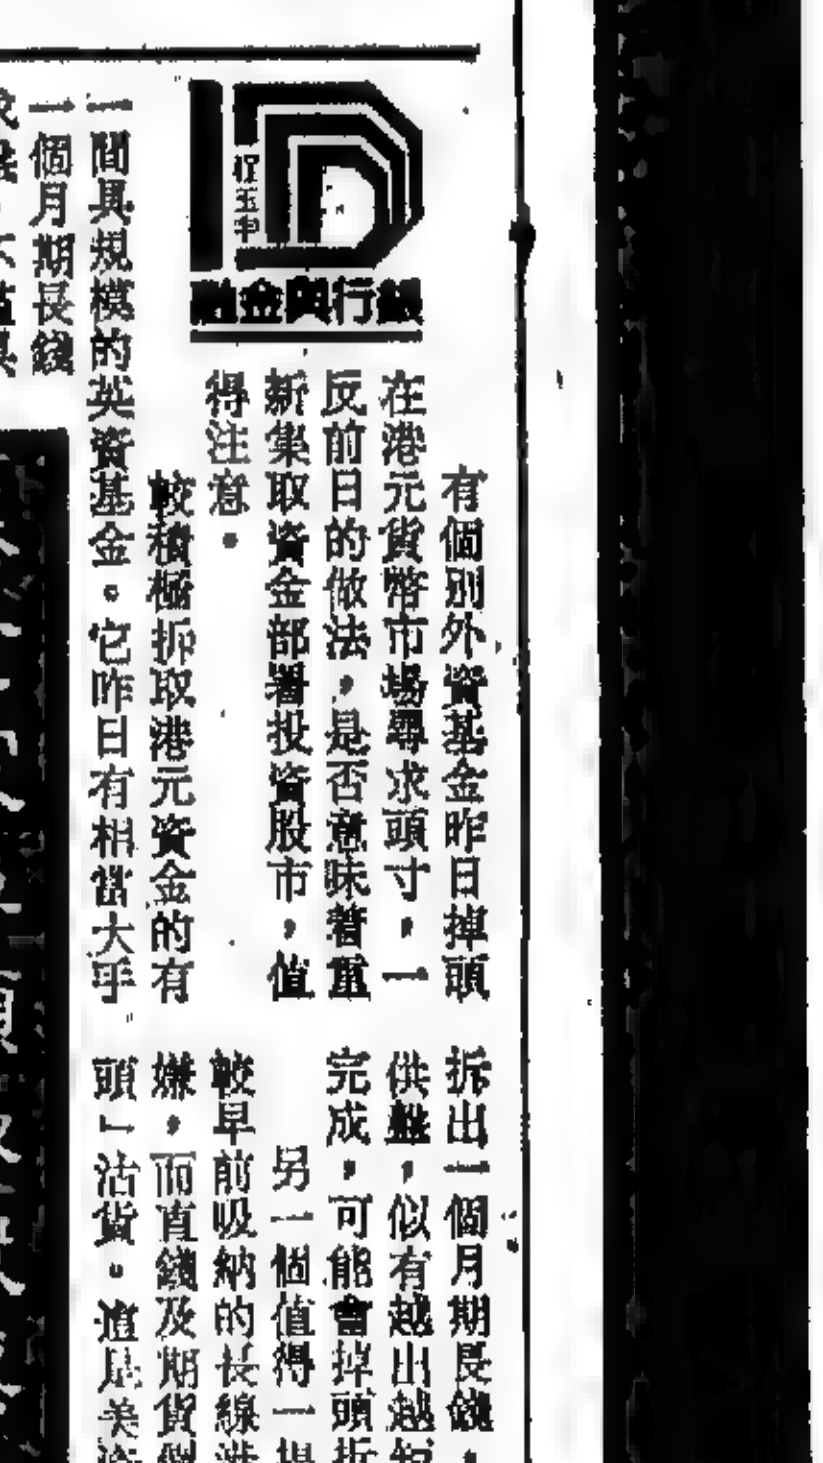 程玉中
銀行與金融
有個別外資基金昨日掉頭
在港元貨幣市場尋求頭寸，一
反前日的做法，是否意味着重
新集取資金部署投資股市，值
得注意。
較積極拆取港元資金的有
一間具規模的英資基金。它昨日有相當大手
一個月期長錢
拆出一個月期長錢，
供盤，似有越出越
完成，可能會掉頭拆
另一個值得一提
較早前吸納的長線
嫌，而直錢及期貨
頭」沽貨。這是美資